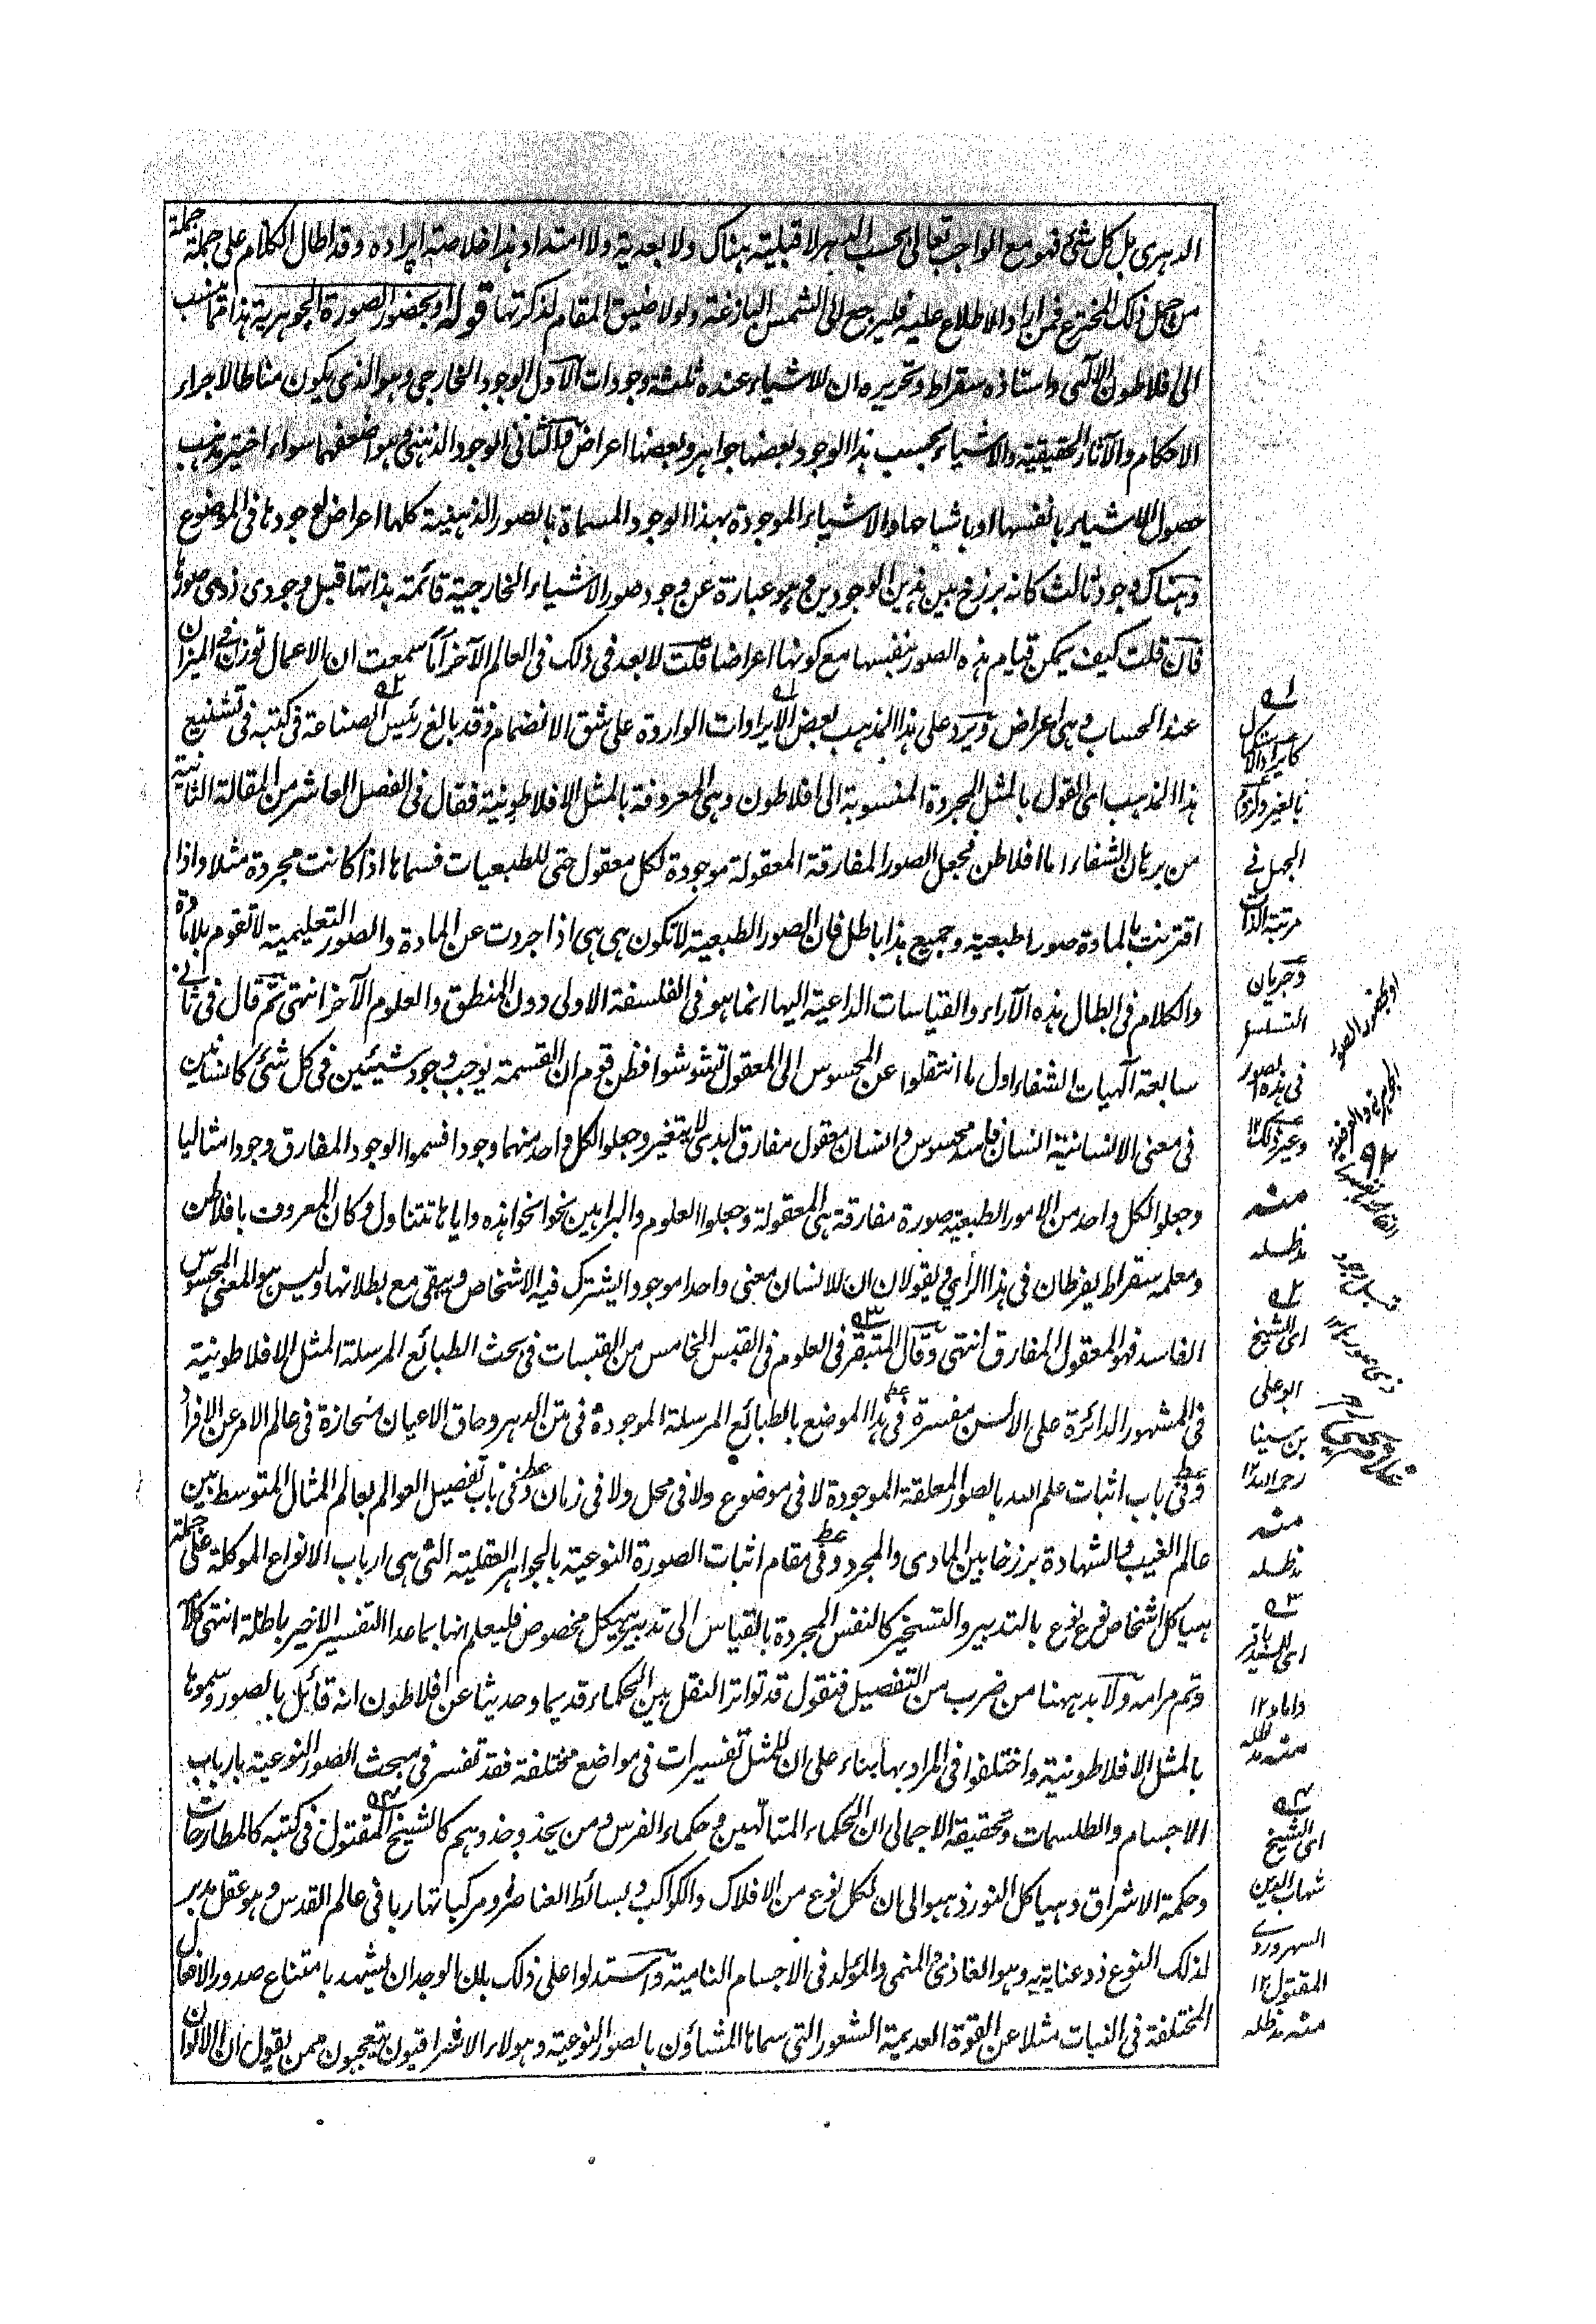 الدهرى بل كل شئ فهو مع الواجب تعالى بحسب الدهر لا قبلية هناك ولا بعدية ولا امتداد هذا خلاصة ايراده وقد اطال الكلام على جملة جملة
من جمل ذلك المخترع فمن اراد الاطلاع عليه فليرجع الى الشمس البازغة ولولا ضيق المقام لذكرتها قوله او بحضور الصورة الجوهرية هذا مما ينسب
الى افلاطون الآلهى واستاذه سقراط وتحريره ان للاشياء عنده ثلثة وجودات الاول الوجود الخارجى وهو الذى يكون مناطا لاجراء
الاحكام والآثار الحقيقية والاشياء بحسب هذا الوجود بعضها جواهر وبعضها اعراض والثانى الوجود الذهنى وهو اضعفهما سواء اختير مذهب
حصول الاشياء بانفسها او باشباحها والاشياء الموجودة بهذا الوجود المسماة بالصور الذهنية كلها اعراض لوجودها فى الموضوع
وهناك وجود ثالث كانه برزخ بين هذين الوجودين وهو عبارة عن وجود صور الاشياء الخارجية قائمة بذاتها قبل وجود ذى صورها
فان قلت كيف يمكن قيام هذه الصور بنفسها مع كونها اعراضا قلت لا بعد فى ذلك فى العالم الآخر أما سمعت ان الاعمال توزن فى الميزان
عند الحساب وهى اعراض ويرد على هذا المذهب بعض الايرادات الواردة على شق الانضمام وقد بالغ رئيس الصناعة فى كتبه فى تشنيع
هذا المذهب اى القول بالمثل المجردة المنسوبة الى افلاطون وهى المعروفة بالمثل الافلاطونية فقال فى الفصل العاشر من المقالة الثانية
من برهان الشفاء اما افلاطن فجعل الصور المفارقة المعقولة موجودة لكل معقول حتى للطبعيات فسماها اذا كانت مجردة مثلا واذا
اقترنت بالمادة صورا طبعية وجميع هذا باطل فان الصور الطبعية لا تكون هى هى اذا جردت عن المادة والصور التعليمية لا تقوم بلا مادة
والكلام فى ابطال هذه الآراء والقياسات الداعية اليها انما هو فى الفلسفة الاولى دون المنطق والعلوم الآخر انتهى ثم قال فى ثانى
سابعة آلهيات الشفاء اول ما انتقلوا عن المحسوس الى المعقول تشوشوا فظن قوم ان القسمة يوجب وجود شيئين فى كل شئ كانسانين
فى معنى الانسانية انسان فاسد محسوس وانسان معقول مفارق ابدى لا يتغير وجعلوا لكل واحد منهما وجودا فسموا الوجود المفارق وجودا مثاليا
وجعلوا لكل واحد من الامور الطبعية صورة مفارقة هى المعقولة وجعلوا العلوم والبراهين نحوا نحو هذه واياها تتناول وكان المعروف بافلاطن
ومعلمه سقراط يفرطان فى هذا الرأى ويقولان ان للانسان معنى واحدا موجودا يشترك فيه الاشخاص ويبقى مع بطلانها وليس هو المعنى المحسوس
الفاسد فهو المعقول المفارق انتهى وقال المتبقر فى العلوم فى القبس الخامس من القبسات فى بحث الطبائع المرسلة المثل الافلاطونية
فى المشهور الدائرة على الألسن مفسرة فى هذا الموضع بالطبائع المرسلة الموجودة فى متن الدهر وحاق الاعيان منحازة فى عالم الامر عن الافراد
وفى باب اثبات علم الله بالصور المعلقة الموجودة لا فى موضوع ولا فى محل ولا فى زمان وفى باب تفصيل العوالم بعالم المثال المتوسط بين
عالم الغيب والشهادة برزخا بين المادى والمجرد وفى مقام اثبات الصورة النوعية بالجواهر العقلية التى هى ارباب الانواع الموكلة على جملة
هياكل اشخاص نوع نوع بالتدبير والتسخير كالنفس المجردة بالقياس الى تدبير هيكل مخصوص فليعلم انها بما عدا التفسير الاخير باطلة انتهى كلامه
وتم مرامه ولا بد ههنا من ضرب من التفصيل فنقول قد تواتر النقل بين الحكماء قديما وحديثا عن افلاطون انه قائل بالصور وسموها
بالمثل الافلاطونية واختلفوا فى المراد بها بناء على ان للمثل تفسيرات فى مواضع مختلفة فقد تفسر فى مبحث الصور النوعية بارباب
الاجسام والطلسمات وتحقيقه الاجمالى ان الحكماء المتألهين وحكماء الفرس ومن يحذو حذوهم كالشيخ المقتول فى كتبه كالمطارحات
وحكمة الاشراق وهياكل النور ذهبوا الى ان لكل نوع من الافلاك والكواكب وبسائط العناصر ومركباتها ربا فى عالم القدس وهو عقل مدبر
لذلك النوع ذو عناية به وهو الغاذى والمنمى والمولد فى الاجسام النامية واستدلوا على ذلك بان الوجدان يشهد بامتناع صدور الافعال
المختلفة فى النبات مثلا عن القوة العديمة الشعور التى سماها المشاؤن بالصور النوعية وهولاء الاشراقيون يتعجبون ممن يقول ان الالوان
بالغير ولزوم
الجهل فى
مرتبة الذات
وجريان
التسلسل
فى هذه الصور
وغير ذلك ١٢
منه
مدظله
اى الشيخ
ابو على
بن سينا
رحمه الله ١٢
منه
مدظله
اى السيد باقر
داماد ١٢
منه مدظله
اى الشيخ
شهاب الدين
السهروردى
المقتول ١٢
منه مدظله
او بحضور الصور